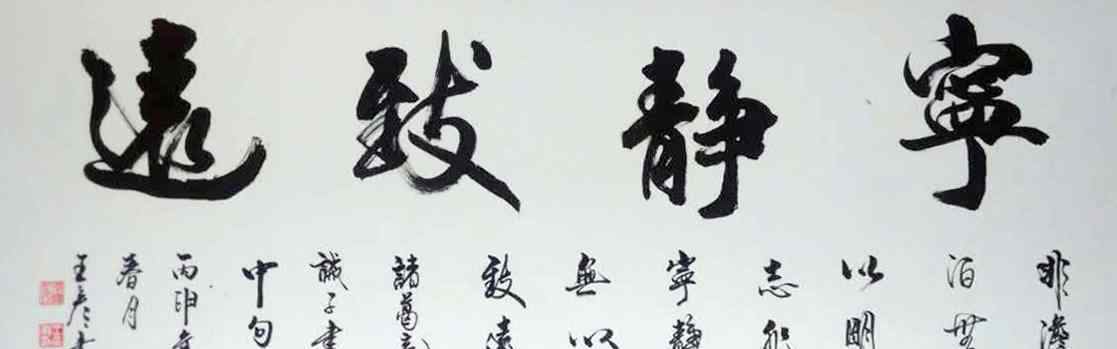 寧靜致遠
非澹
泊無
以明
志非
寧靜
無以
致遠
諸葛亮
誡子書
中句
丙申年
春月
王彦